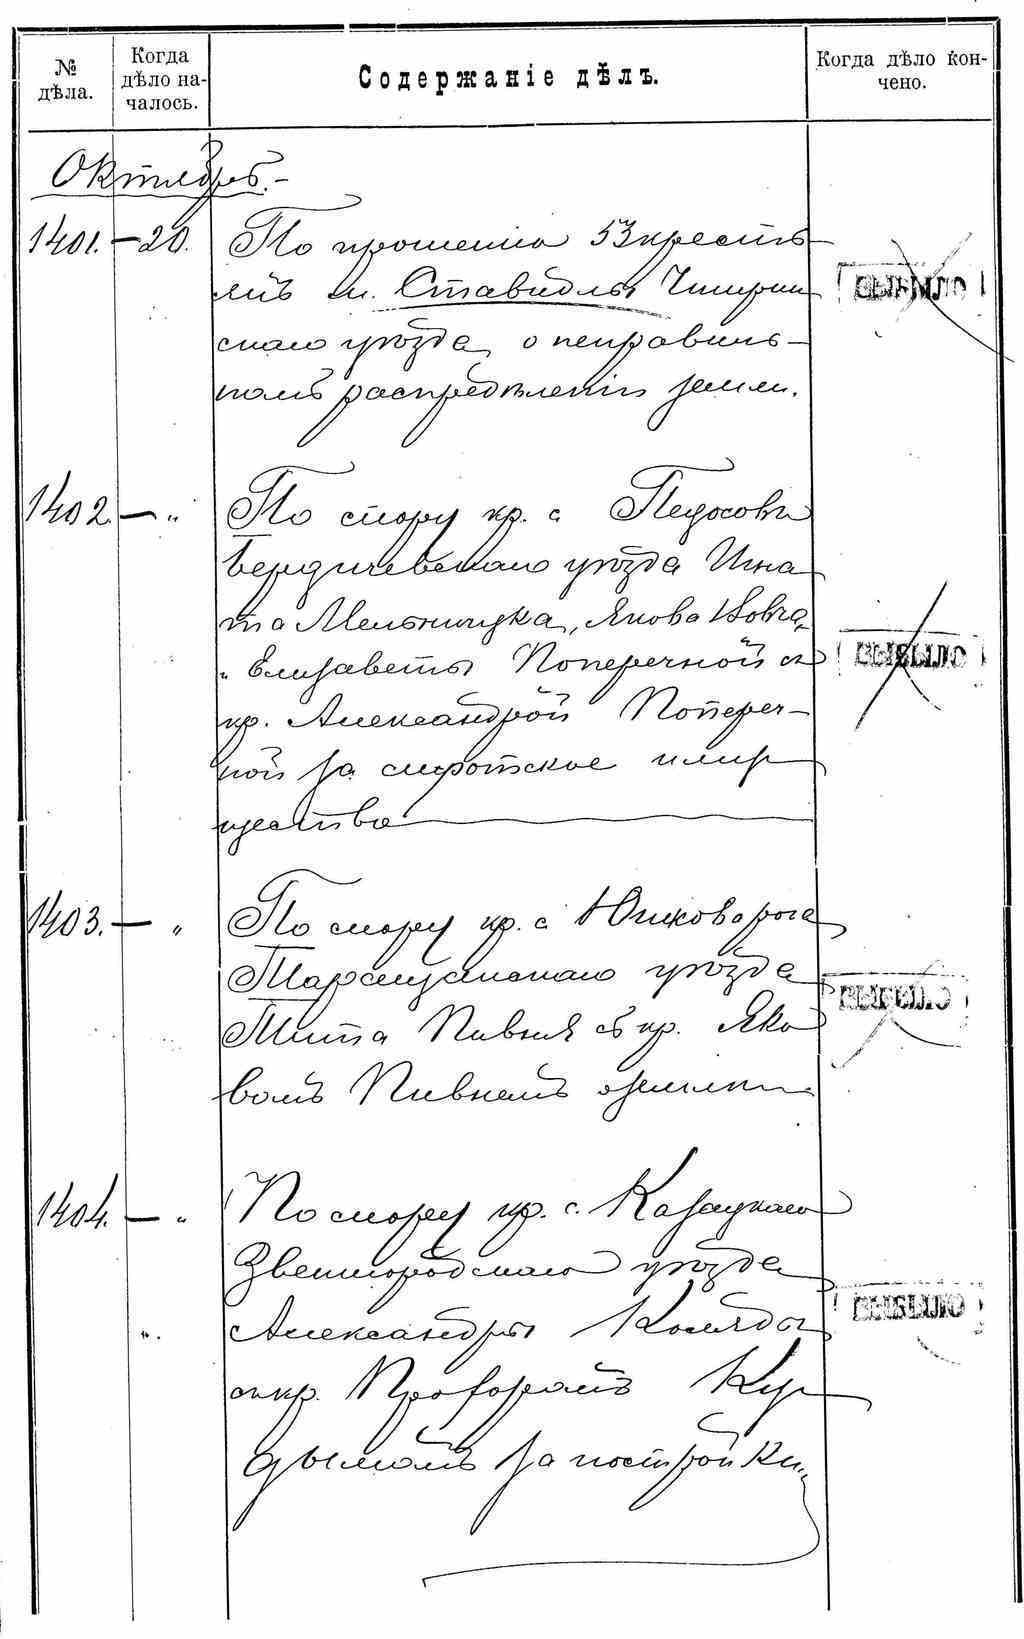 № дѣла.
Когда дѣло на-
чалось.
Содержаніе дѣлъ.
Когда дѣло кон-
чено.
Октябрь.-
1401. — 20. По прошенію 53 кресть-
янъ м. Ставидлы Чигрин
скаго уѣзда о неправиль-
номъ распредѣленіи земли.
ВЫБЫЛО
1402. — „ По спору кр. с.
Бердичевскаго уѣзда Игна
та Мельничука, Якова Вовка,
„ Елизаветы Поперечной съ
кр. Александрой Попереч-
ной за сиротское иму
щество
ВЫБЫЛО
1403. — „ По спору кр. с. Юшковарога
Таращанскаго уѣзда
Тита Пивня съ кр. Яко
вомъ Пивнемъ о земли
ВЫБЫЛО
1404. — „ По спору кр. с. Казацкаго
Звенигородскаго уѣзда
„. Александры Коляды
съ кр. Прохоромъ Кур
дымомъ за постройки
ВЫБЫЛО